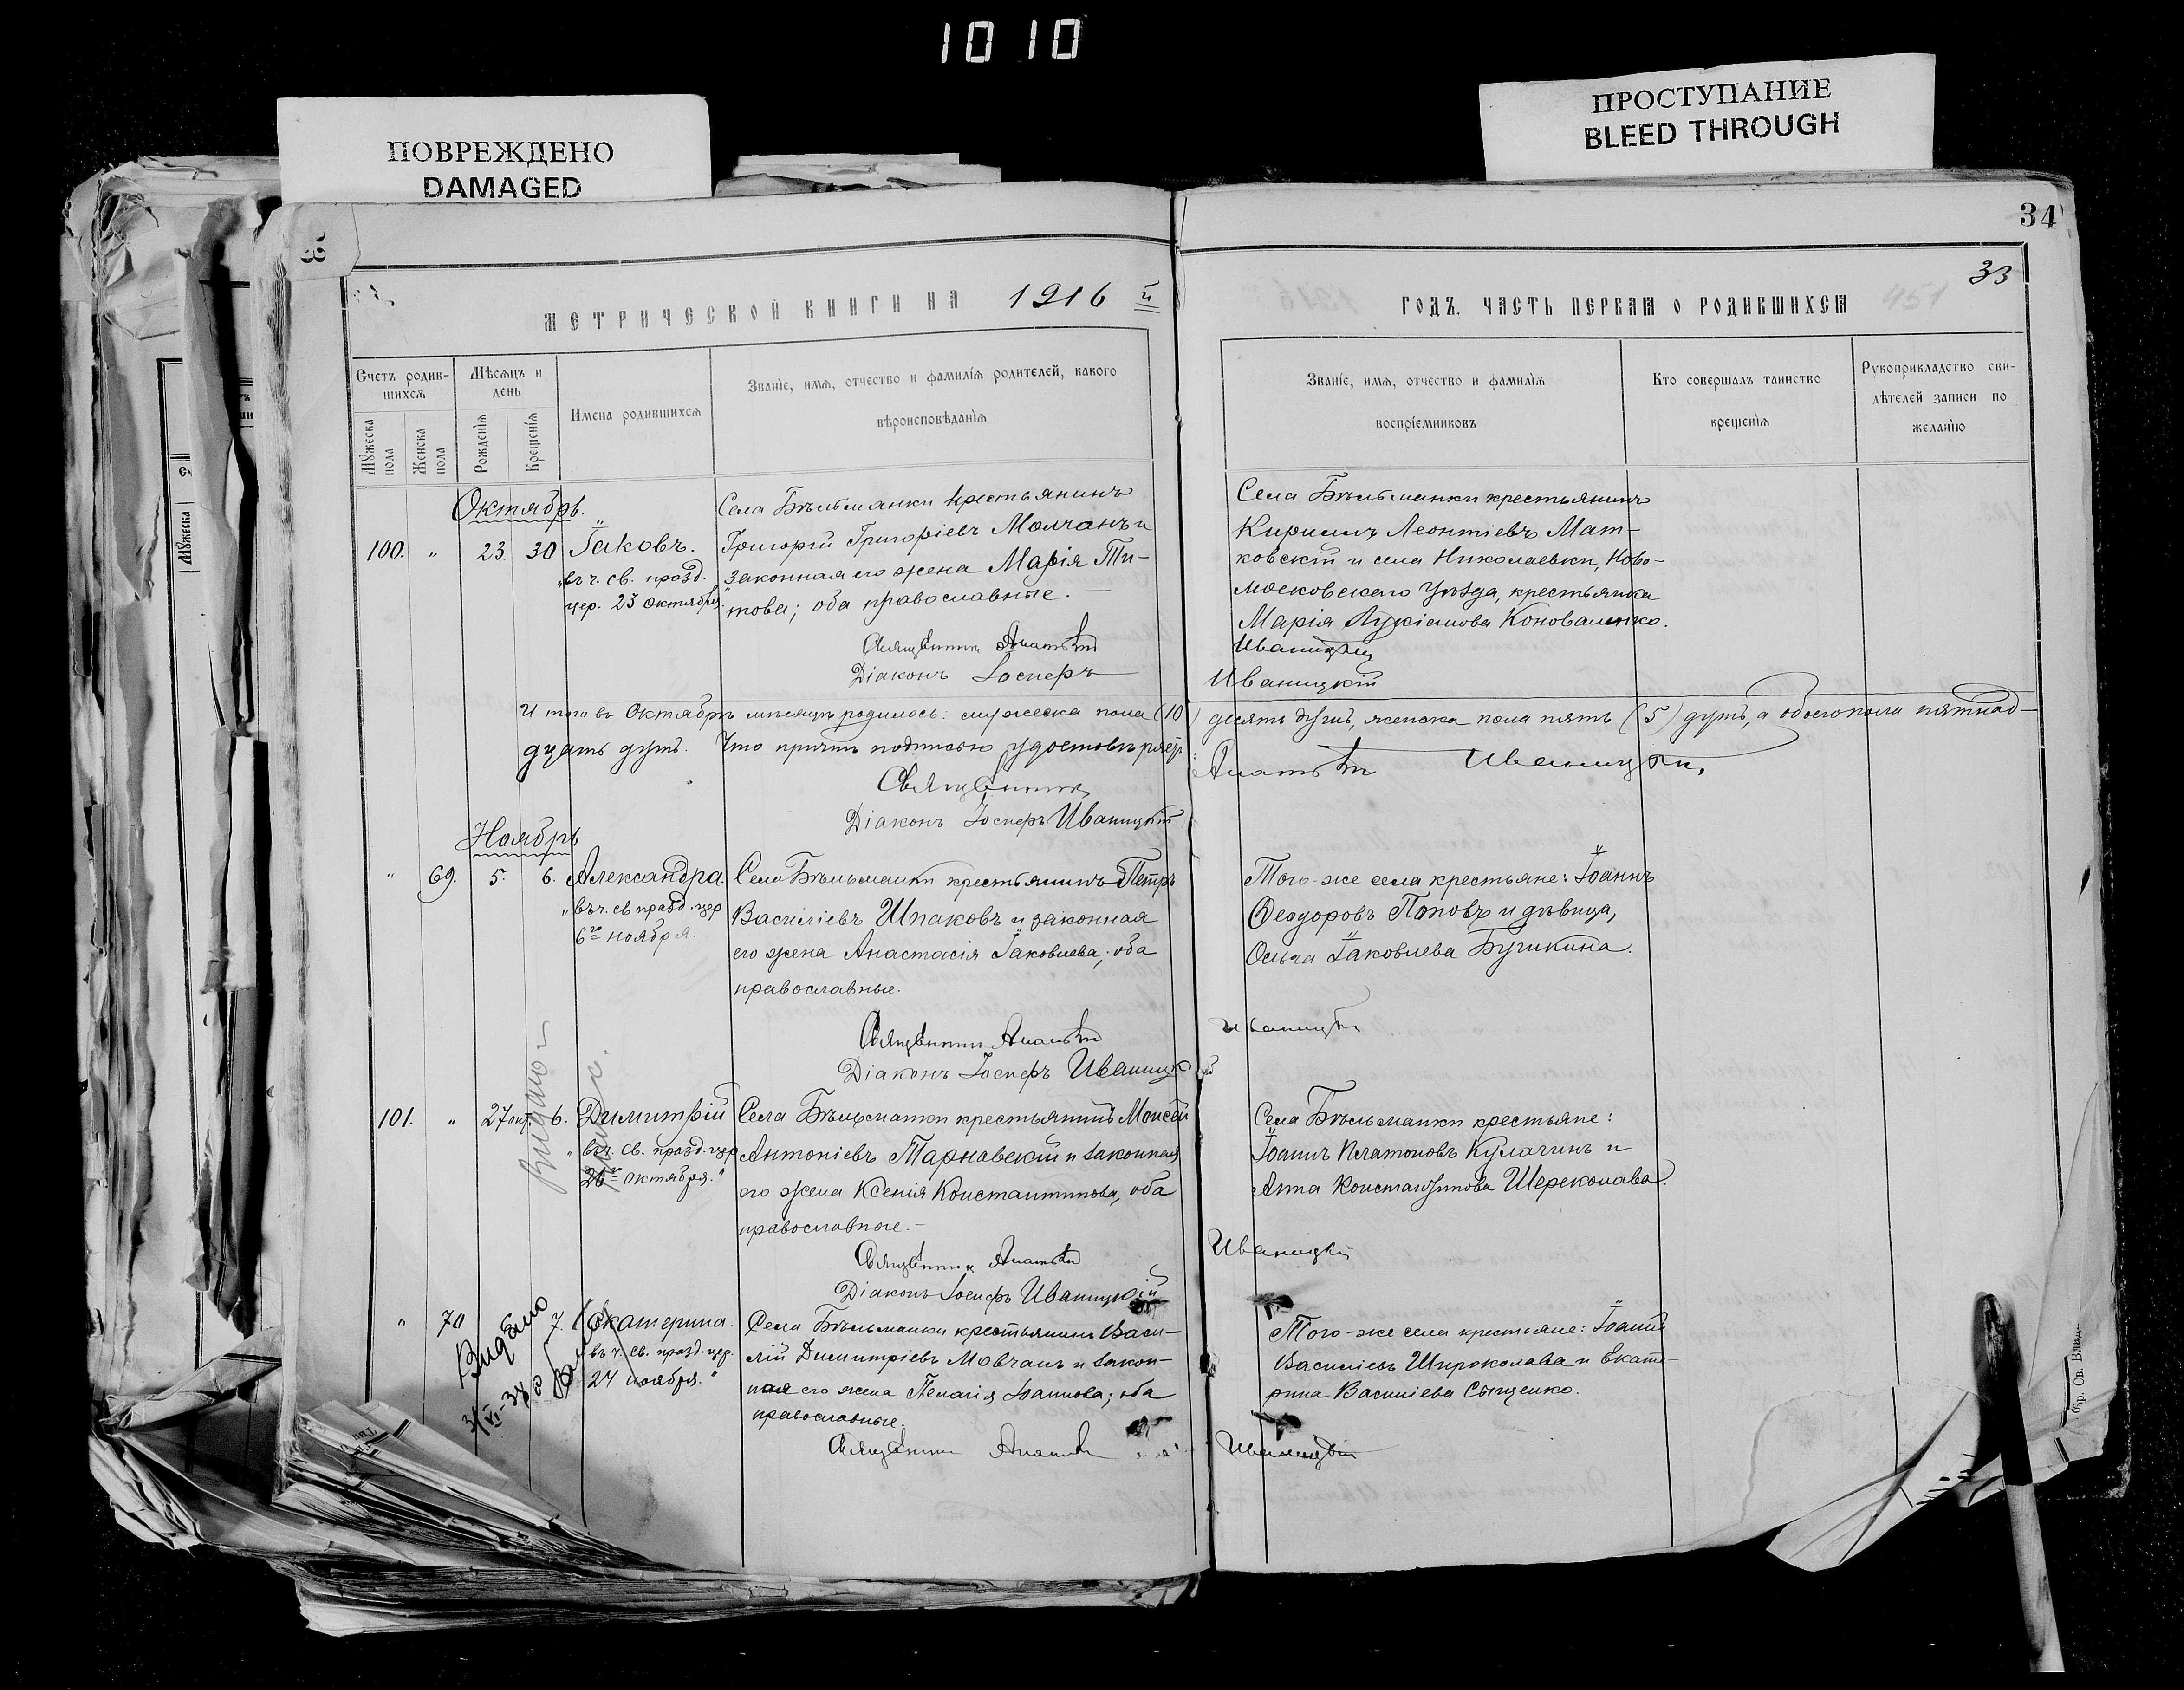 1010
ПОВРЕЖДЕНО
DAMAGED
ПРОСТУПАНИЕ
BLEED THROUGH
34
33
МЕТРИЧЕСКОЙ КНИГИ НА 1916 й
ГОДЪ. ЧАСТЬ ПЕРВАЯ О РОДИВШИХСЯ
Счетъ родив-
шихся
Мужеска пола
Женска пола
Мѣсяцъ и
день
Рожденія
Крещенія
Имена родившихся
Званіе, имя, отчество и фамилія родителей, какого
вѣроисповѣданія
Званіе, имя, отчество и фамилія
воспріемниковъ
Кто совершалъ таинство
крещенія
Рукоприкладство сви-
дѣтелей записи по
желанію
Октябрь.
100. " 23. 30 Іаковъ.
"въ ч. св. празд.
цер. 23 октября."
Села Бѣльманки крестьянинъ
Григорій Григоріевъ Молчанъ и
законная его жена Марія Ти-
това; оба православные. —
Священникъ
Діаконъ Іосифъ
Села Бѣльманки крестьянинъ
Кириллъ Леонтіевъ Мат-
ковскій и села Николаевки, Ново-
московскаго уѣзда, крестьянка
Марія Лукіанова Коноваленко.
Иваницкій
Иваницкій
Итого въ Октябрѣ мѣсяцѣ родилось: мужеска пола (10) десять душъ, женска пола пять (5) душъ, а обоего пола пятнад-
цать душъ. Что причтъ подписью удостовѣряетъ:
Священникъ
Иваницкій
Діаконъ Іосифъ Иваницкій
Ноябрь
" 69. 5. 6. Александра.
"въ ч. св. празд. цер
6го ноября.
Села Бѣльманки крестьянинъ Петръ
Василіевъ Шпаковъ и законная
его жена Анастасія Іаковлева; оба
православные.
Священникъ
Діаконъ Іосифъ Иваницкій
Того-же села крестьяне: Іоаннъ
Ѳеодоровъ Поповъ и дѣвица,
Ольга Іаковлева Бугикина.
Иваницкій
Видано
101. " 27 окт. 6. Димитрій
"въ ч. св. празд. цер
26го октября."
Села Бѣльманки крестьянинъ Моисей
Антоніевъ Тарнавскій и законная
его жена Ксенія Константинова, оба
православные. —
Священникъ
Діаконъ Іосифъ Иваницкій
Села Бѣльманки крестьяне:
Іоаннъ Платоновъ Кулагинъ и
Анна Константинова Шереколава.
Иваницкій
" 70 7. Екатерина.
въ ч. св. празд. цер.
24 ноября."
Видано
Села Бѣльманки крестьянинъ Васи-
лій Димитріевъ Мовчанъ и закон-
ная его жена Пелагія Іоаннова; оба
православные.
Священникъ
Того-же села крестьяне: Іоаннъ
Василіевъ Широколава и Екате-
рина Василіева Сыщенко.
Иваницкій
Мужеска